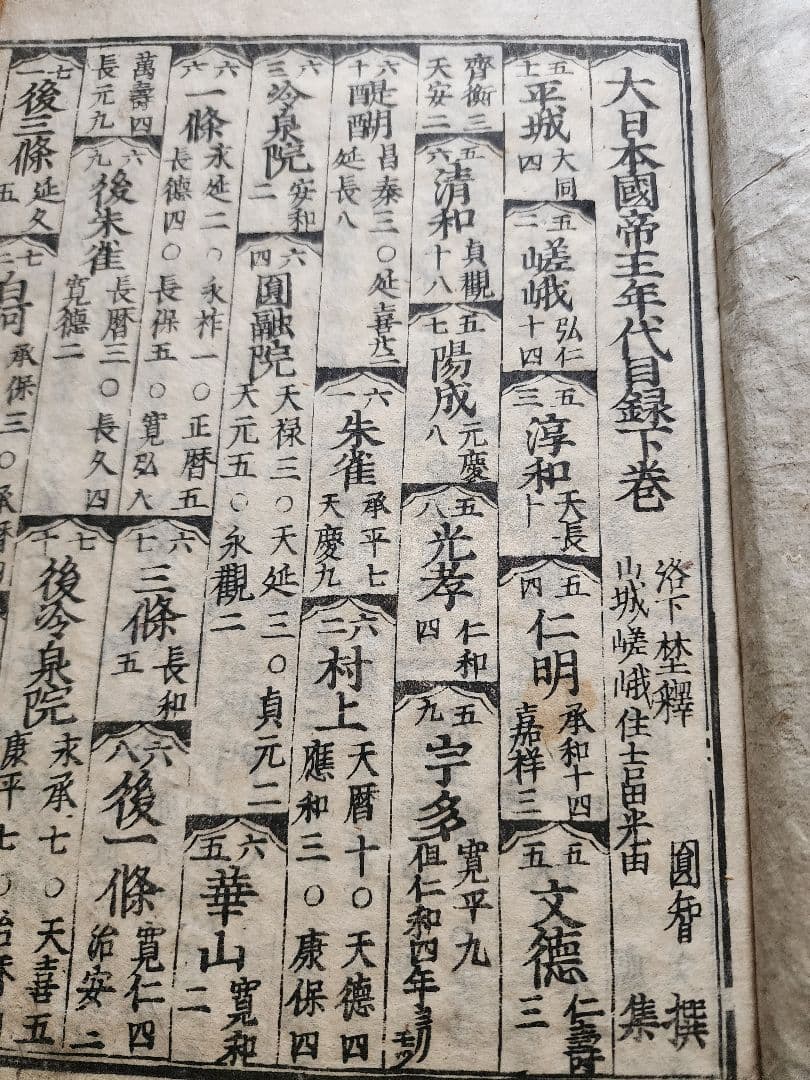 大日本國帝王年代目録下巻
洛下埜釋 圓智 撰
山城嵯峨住士 光由 集
五 平城 大同 四
五二 嵯峨 弘仁 十四
五三 淳和 天長 十
五四 仁明 承和十四 嘉祥三
五五 文德 仁壽 三
齊衡三 天安二
五六 清和 貞觀 十八
五七 陽成 元慶 八
五八 光孝 仁和 四
五九 宇多 寛平九 但仁和四年ヨリ
六十 醍醐 昌泰三〇延喜 延長八
六一 朱雀 承平七 天慶九
六二 村上 天曆十〇天德四 應和三〇康保四
六三 冷泉院 安和 二
六四 圓融院 天禄三〇天延三〇貞元二 天元五〇永觀二
六五 華山 寛和 二
六六 一條 永延二〇永祚一〇正暦五 長德四〇長保五〇寛弘八
六七 三條 長和 五
六八 後一條 寛仁四 治安二
萬壽四 長元九
六九 後朱雀 長暦三〇長久四 寛德二
七十 後冷泉院 永承七〇天喜五 康平七〇治
七一 後三條 延久 五
七二 白河 承保三〇承暦